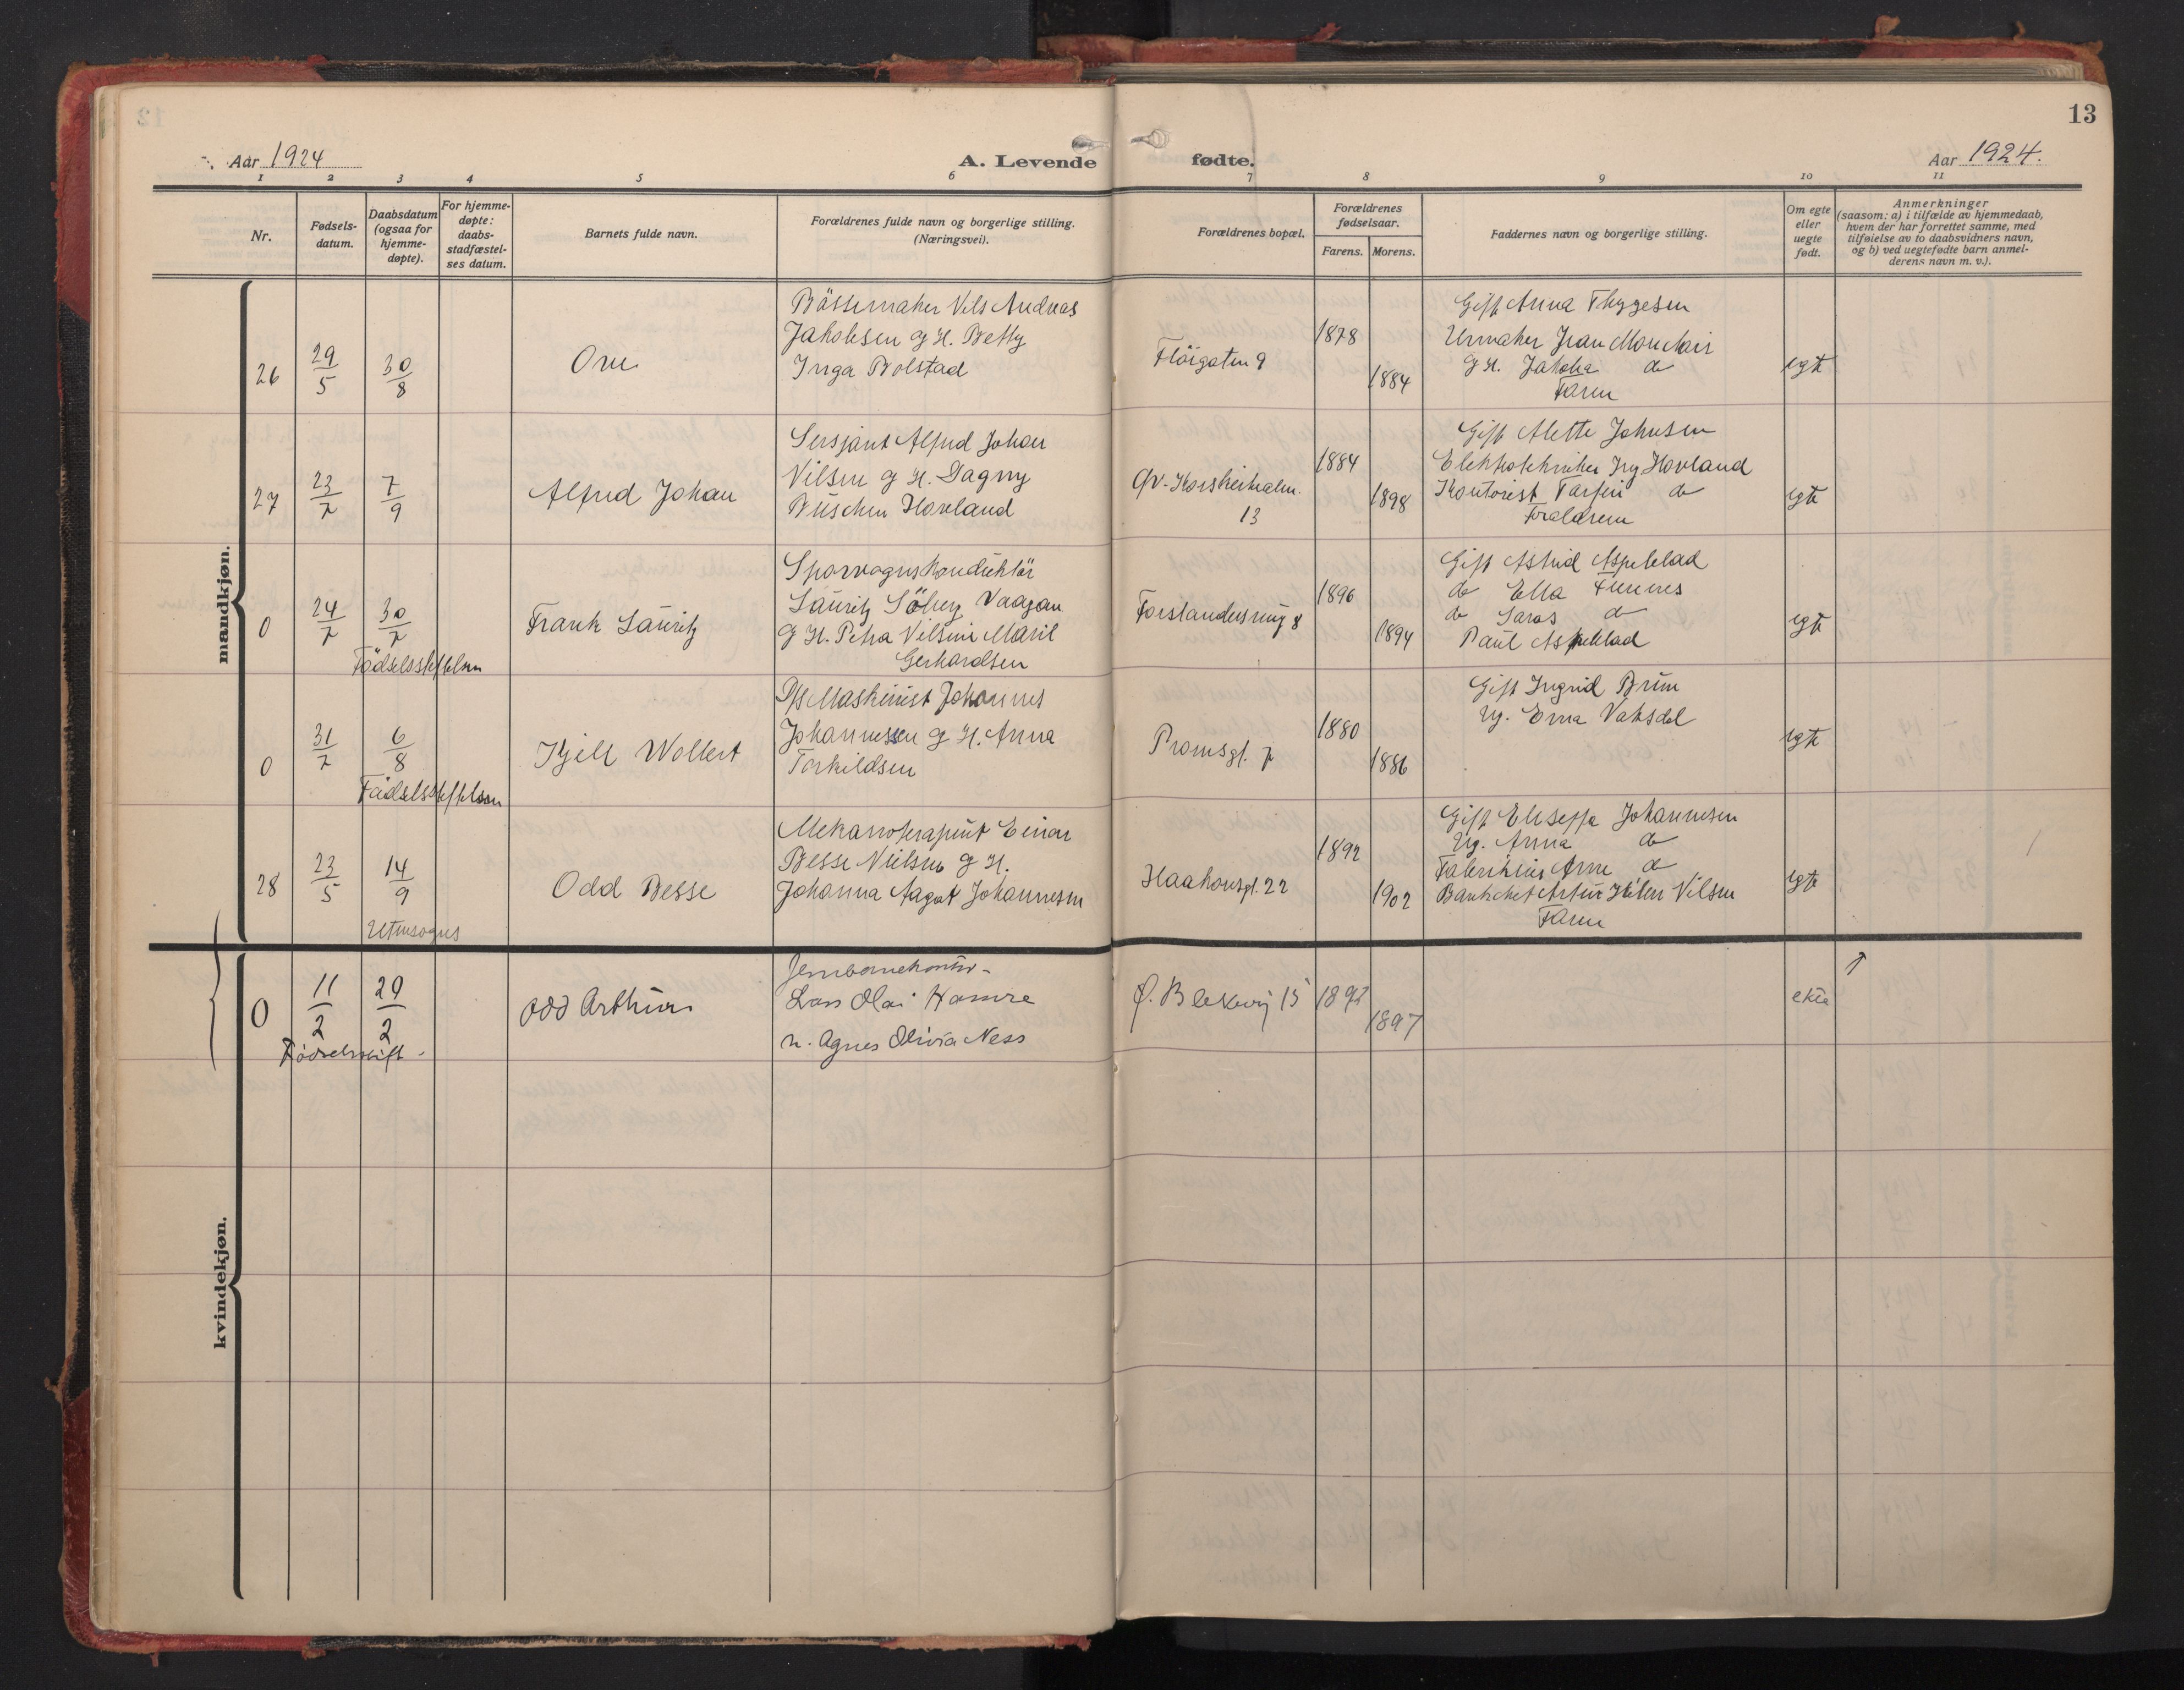 13
Aar 1924
A. Levende fødte.
Aar 1924.
1 2 3 4 5 6 7 8 9 10 11
Nr.
Fødsels-
datum.
Daabsdatum
(ogsaa for
hjemme-
døpte).
For hjemme-
døpte:
daabs-
stadfæstel-
ses datum.
Barnets fulde navn.
Forældrenes fulde navn og borgerlige stilling.
(Næringsvei).
Forældrenes bopæl.
Forældrenes
fødselsaar.
Farens. Morens.
Faddernes navn og borgerlige stilling.
Om egte
eller
uegte
født.
Anmerkninger
(saasom: a) i tilfælde av hjemmedaab,
hvem der har forrettet samme, med
tilføielse av to daabsvidners navn,
og b) ved uegtefødte barn anmel-
derens navn m. v.).
mandkjøn.
26
29/5
30/8
Ove
Bössemaker Nils Andreas
Jakobsen og H. Betty
Inga Bolstad
Flöigaten 9
1878
1884
Gift Anna Thygesen
Urmaker Jean Monclair
og H. Jakoba do
Faren
egte
27
23/7
7/9
Alfred Johan
Sersjant Alfred Johan
Nilsen og H. Dagny
Büschen Hovland
Øv. Korskirkealm.
13
1884
1898
Gift Alette Johnsen
Elektrotekniker Ing Hovland
Kontorist Torfin do
Forældrene
egte
0
24/7
30/7
Födselsseddelen
Frank Lauritz
Sporvognskonduktör
Lauritz Söberg Vaagan
og H. Petra Nilsine Marie
Gerhardsen
Forstandersmug 8
1896
1894
Gift Astrid Aspeblad
do Ella
do do
Paul Aspeblad
egte
0
31/7
6/8
Födselsseddelen
Kjell Wollert
D/S Maskinist Johannes
Johannessen og H. Anna
Torkildsen
Promsgt. 7
1880
1886
Gift Ingrid Brun
Ug. Erna Vaksdal
egte
28
23/5
14/9
Utensogns
Odd Besse
Mekanoterapeut Einar
Besse Nielsen og H.
Johanna Aagot Johannesen
Haakonsgt. 22
1892
1902
Gift Eliseffa Johannesen
Ug. Anna do
Fabrikeier Arne do
Bankchef Artur Nilsen
Faren
egte
kvindekjøn.
0
11/2
29/2
Fødselsskift.
Odd Arthur
Lars Olai Hamre
h. Agnes Olivia Ness
Ø. Blekevej 15
1892
1897
ekte